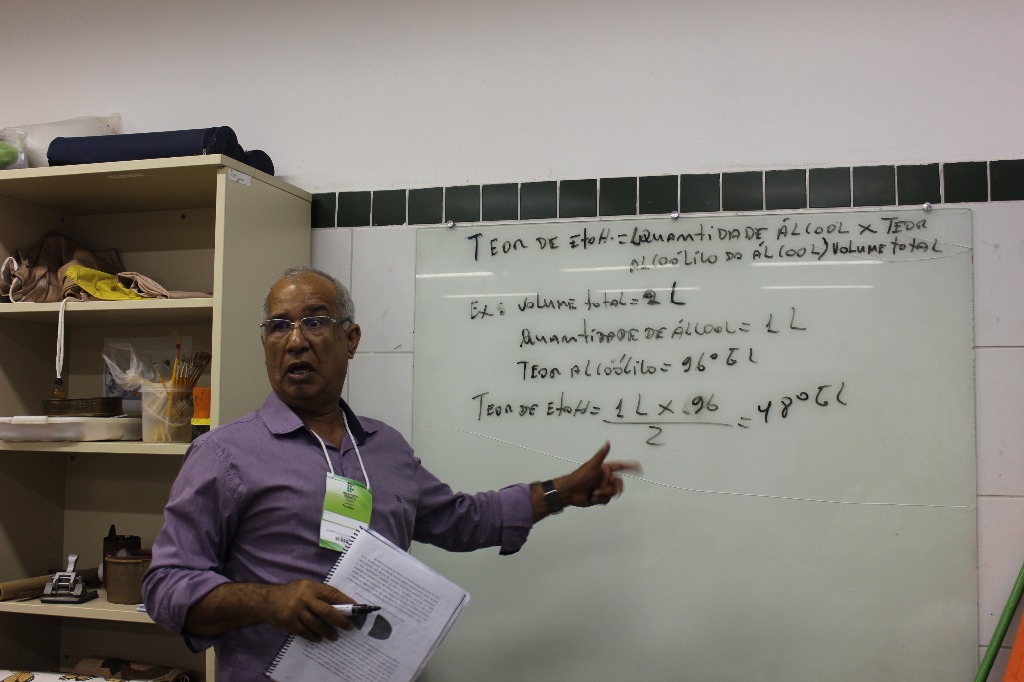 TEOR DE EtOH.=(QUANTIDADE ÁLCOOL X TEOR
ALCOÓLICO DO ÁLCOOL)VOLUME TOTAL
EX: VOLUME TOTAL = 2 L
QUANTIDADE DE ÁLCOOL = 1 L
TEOR ALCOÓLICO = 96° GL
TEOR DE EtOH = 1 L X 96 = 48° GL
2